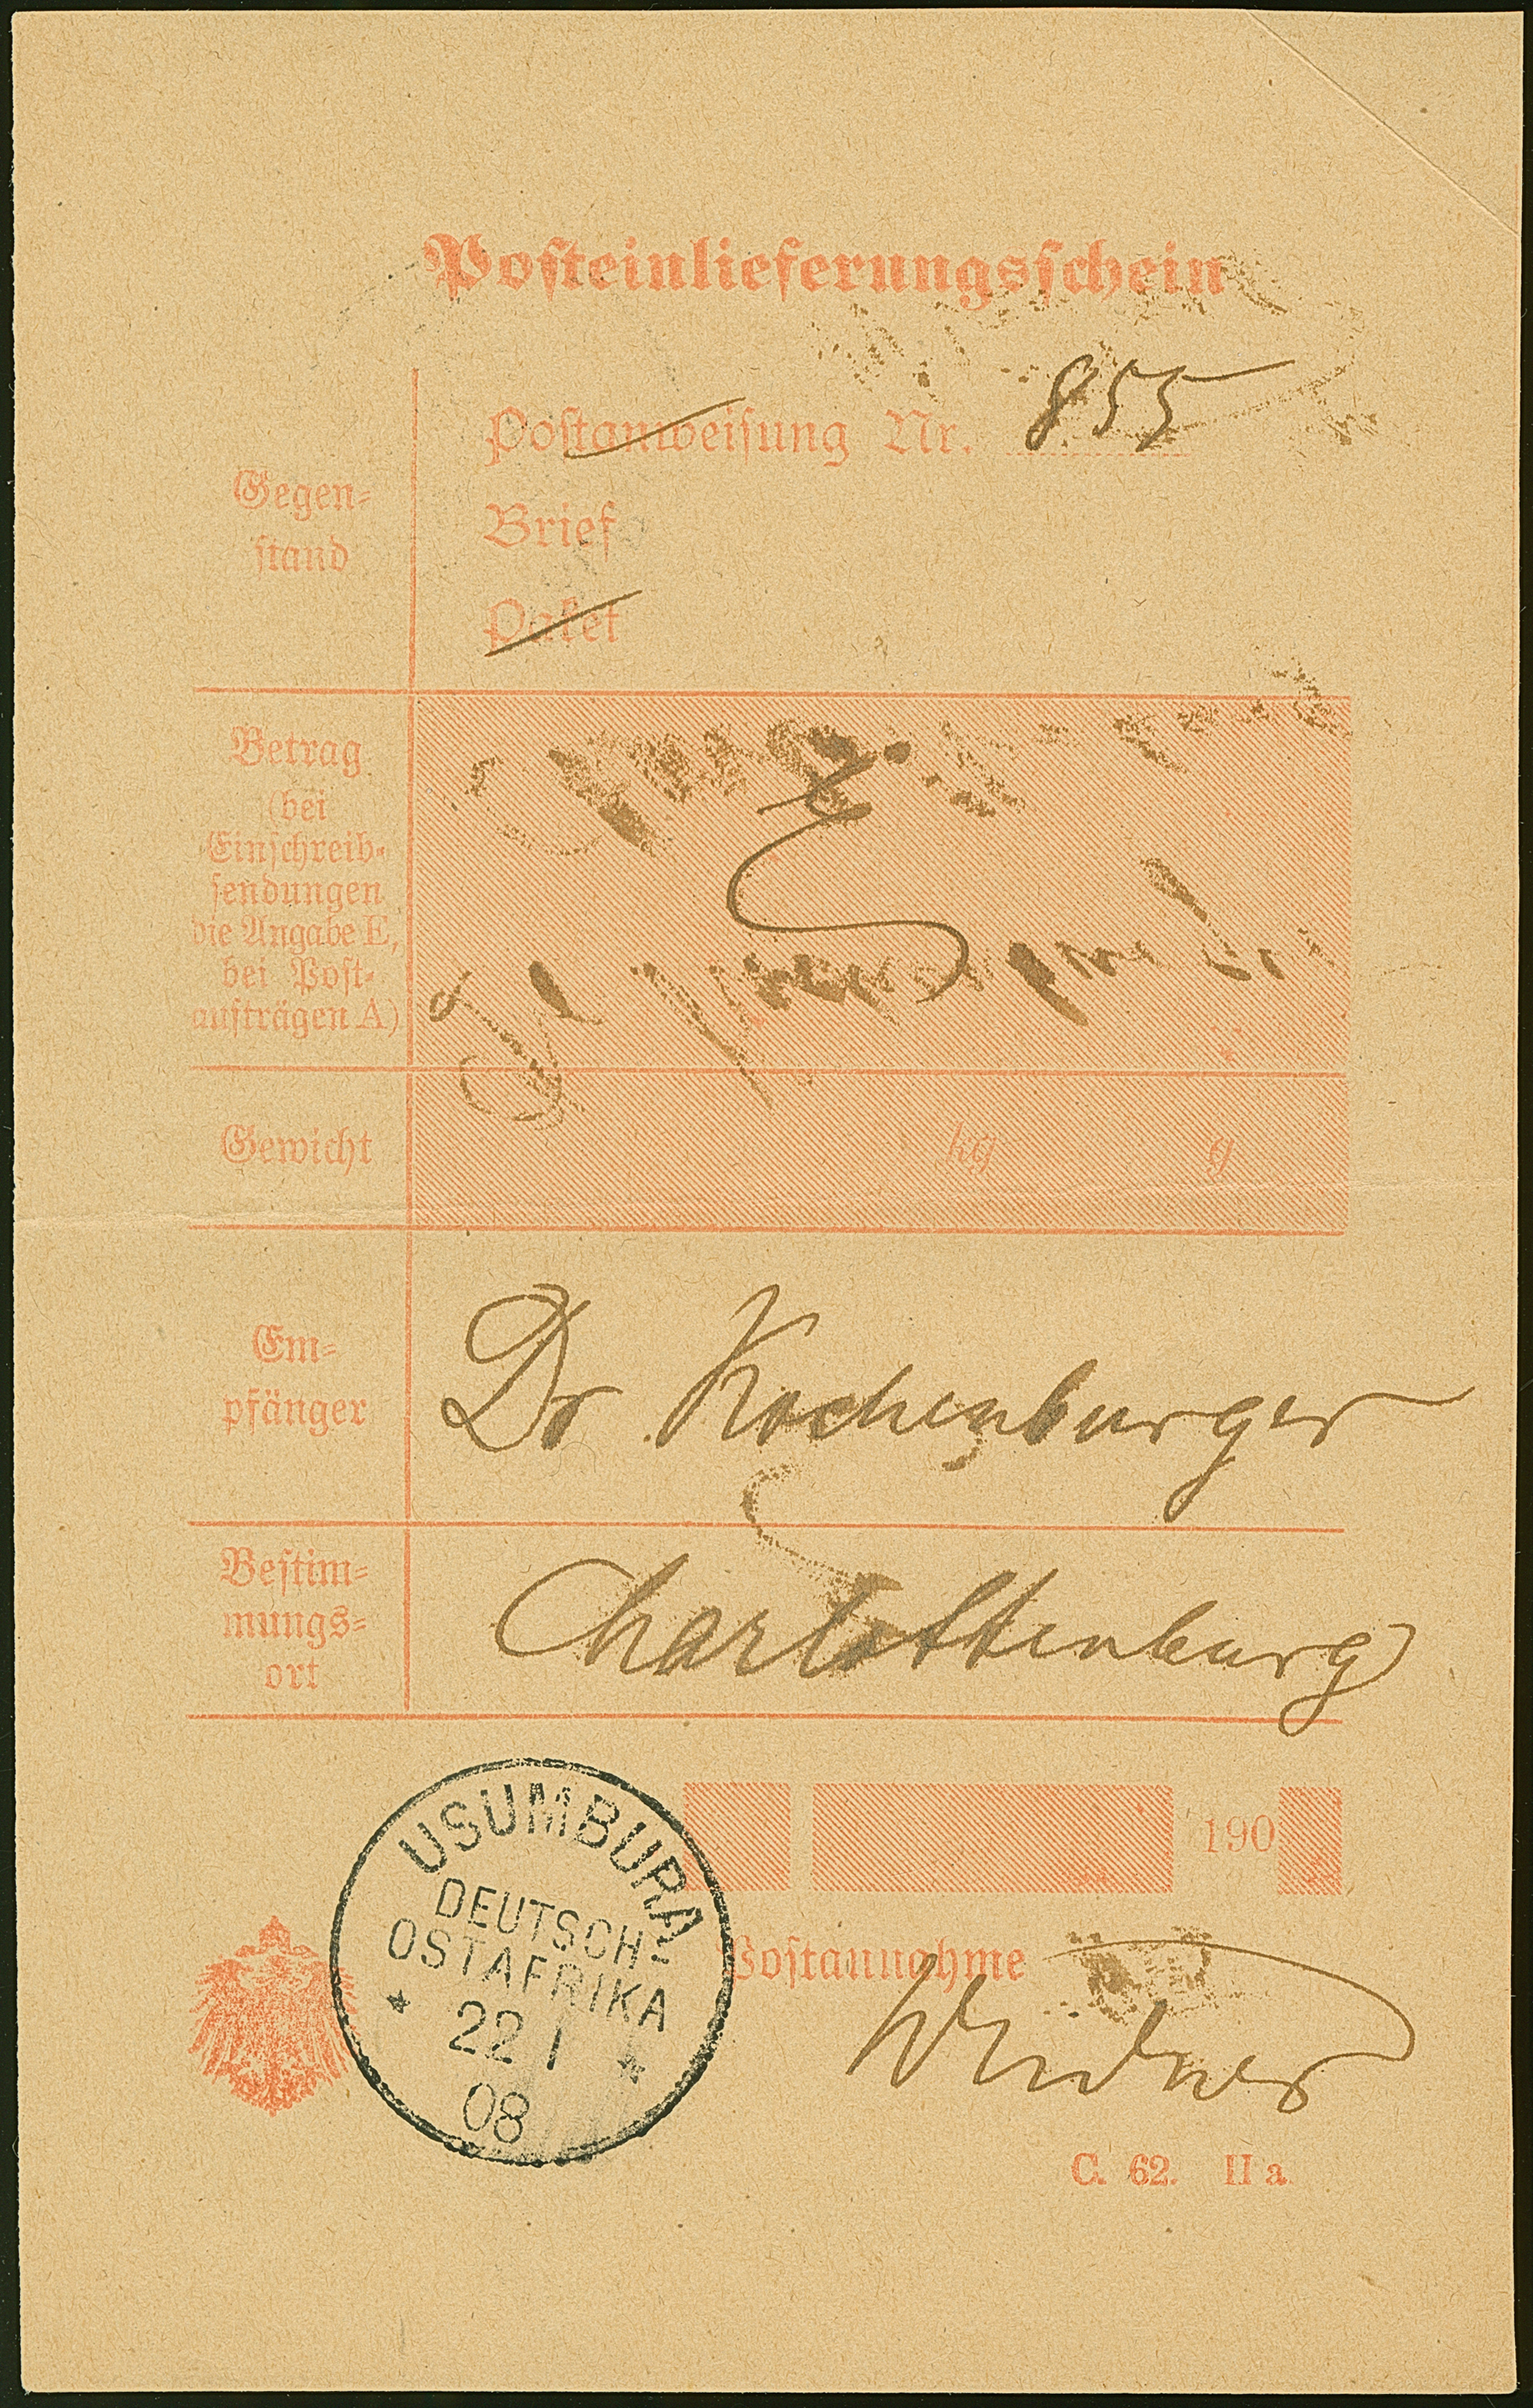 Posteinlieferungsschein
Postanweisung Nr. 855
Gegen-
stand
Brief
Paket
Betrag
(bei
Einschreib-
sendungen
die Angabe E,
bei Post-
aufträgen A)
E
Gewicht kg g
Em-
pfänger
Dr Kochenburger
Bestim-
mungs-
ort
Charlottenburg
190
USUMBURA
DEUTSCH-
OSTAFRIKA
22 1
08
Postannahme
C. 62. II a